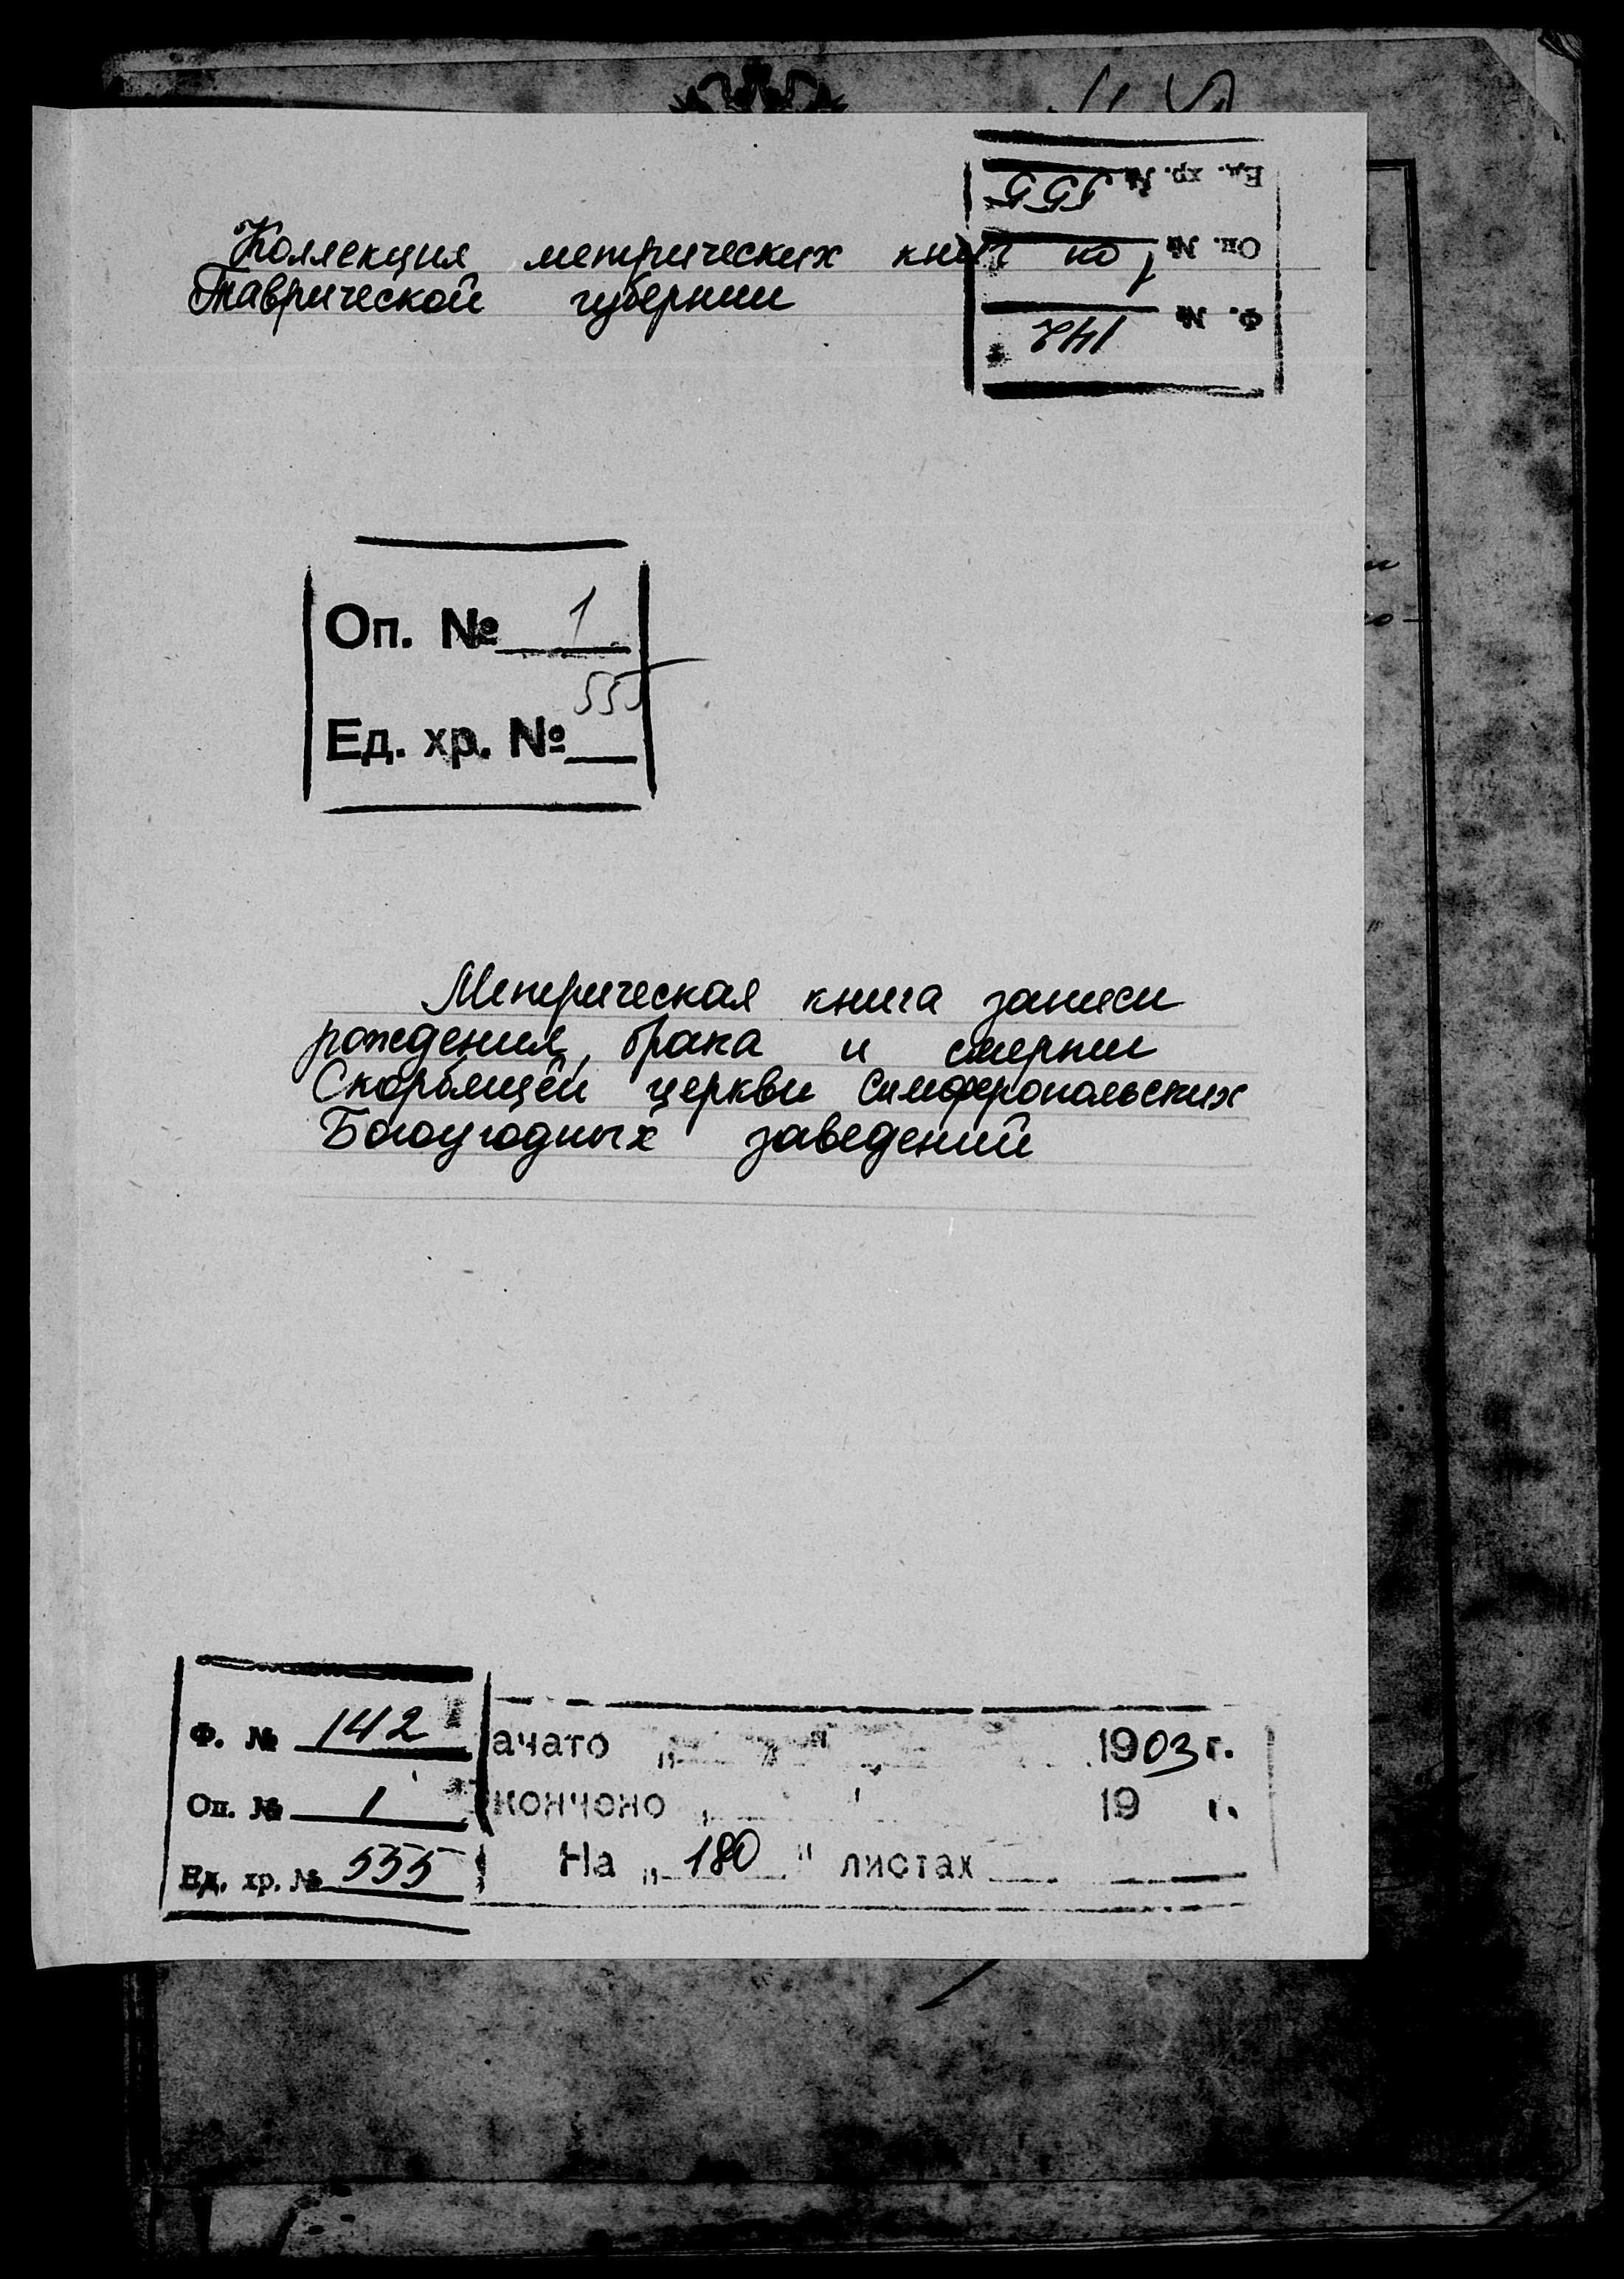 Ед. хр. № 555
Оп. № 1
Ф. № 142
Коллекция метрических книг по
Таврической губернии
Оп. № 1
Ед. хр. № 555
Метрическая книга записи
рождения, брака и смерти
Скорбящей церкви Симферопольских
Богоугодных заведений
Ф. № 142
Оп. № 1
Ед. хр. № 555
ачато " " 1903 г.
кончено " 19 г.
На „ 180 " листах